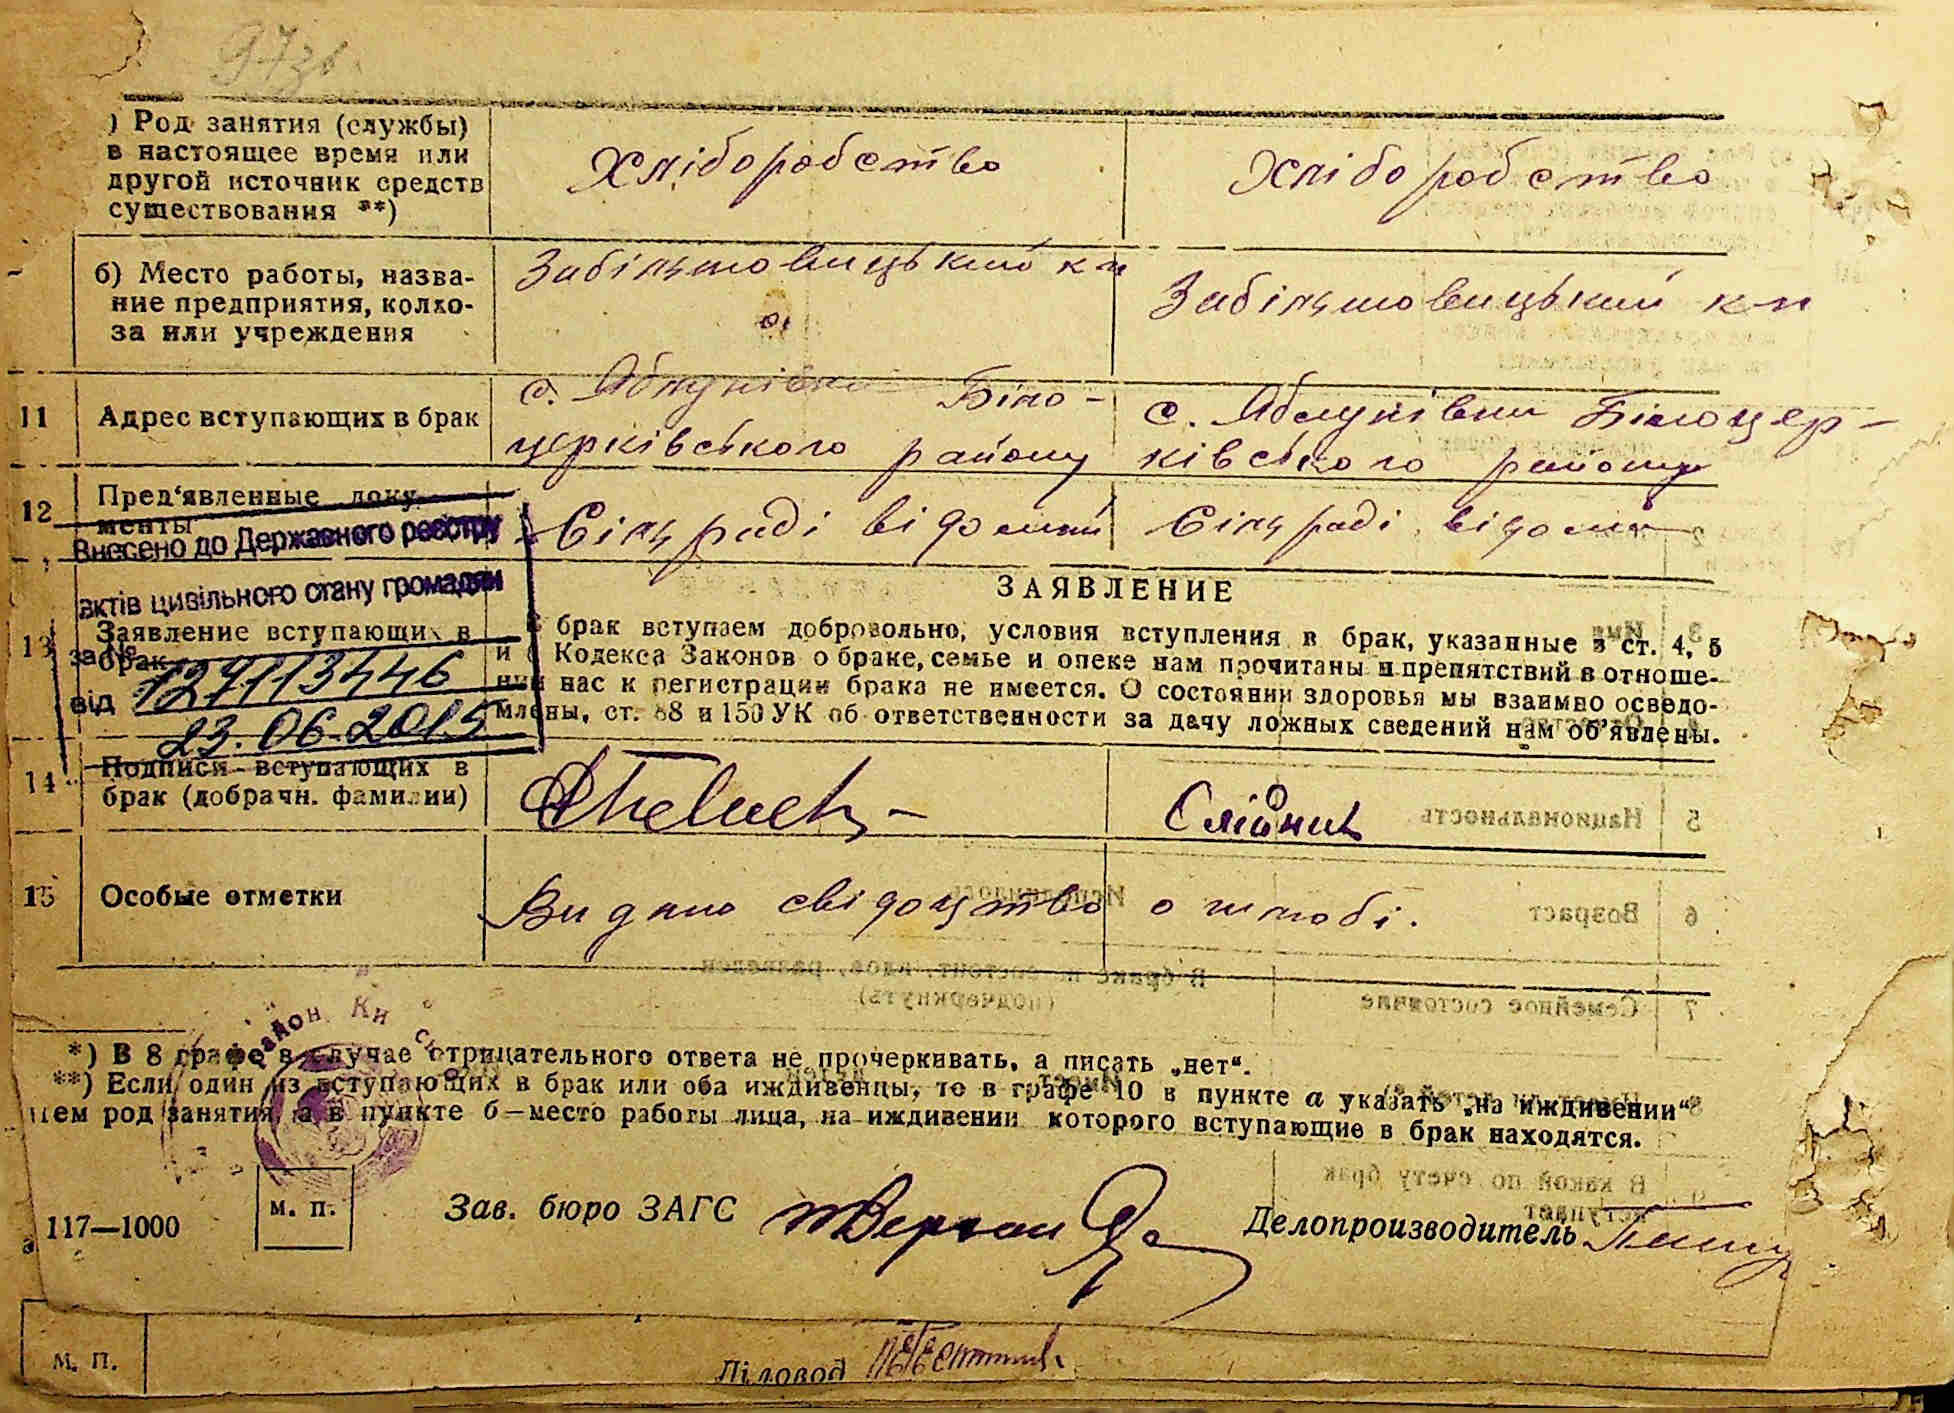 97зв.
) Род занятия (службы)
в настоящее время или
другой источник средств
существования **)
Хліборобство
Хліборобство
б) Место работы, назва-
ние предприятия, колхо-
за или учреждения
11
Адрес вступающих в брак
с. Яблунівка Біло-
церківського району
с. Яблунівка Білоцер-
ківського району
12
Пред'явленные доку-
менты
Сільраді відомий
Сільраді відома
Внесено до Державного реєстру
актів цивільного стану громадян
за №
127113446
від
23.06.2015
13
Заявление вступающих в
брак
ЗАЯВЛЕНИЕ
В брак вступаем добровольно, условия вступления в брак, указанные в ст. 4, 5
и 6 Кодекса Законов о браке, семье и опеке нам прочитаны и препятствий в отноше-
нии нас к регистрации брака не имеется. О состоянии здоровья мы взаимно осведо-
млены, ст. 88 и 150 УК об ответственности за дачу ложных сведений нам об'явлены.
14
Подписи вступающих в
брак (добрачн. фамилии)
15
Особые отметки
Видано свідоцтво о шлюбі.
*) В 8 графе в случае отрицательного ответа не прочеркивать, а писать „нет“.
**) Если один из вступающих в брак или оба иждивенцы, то в графе 10 в пункте а указать „на иждивении“
чем род занятия, а в пункте б—место работы лица, на иждивении которого вступающие в брак находятся.
район Ки
117—1000
м. п.
Зав. бюро ЗАГС
Делопроизводитель
м. п.
Діловод